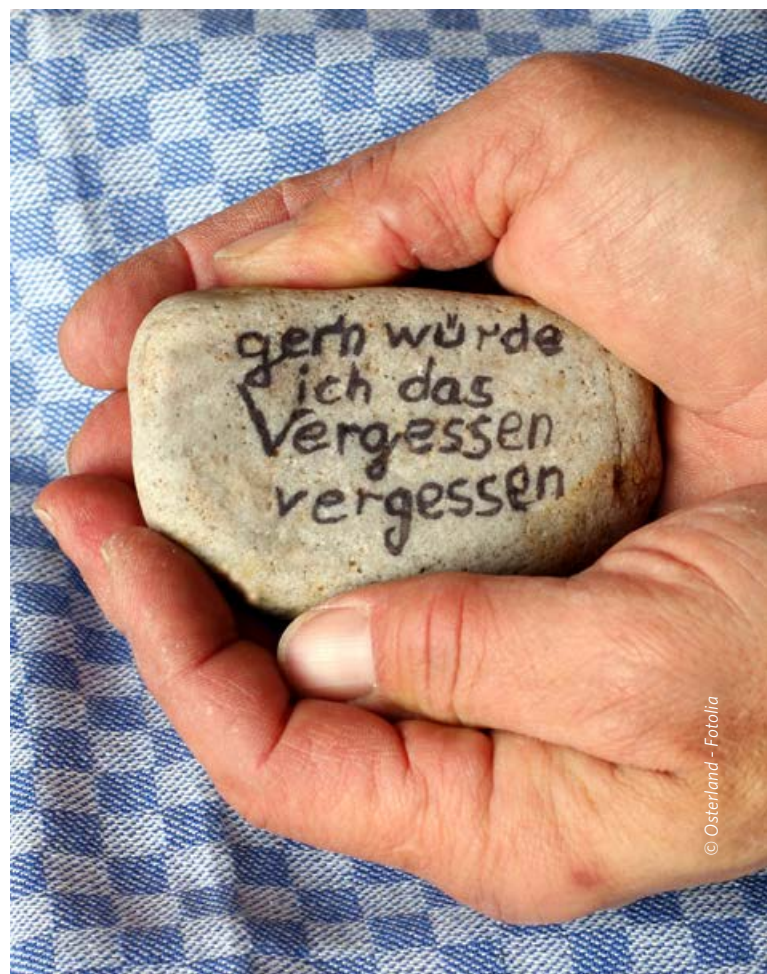 gern würde
ich das
Vergessen
vergessen
© Osterland - Fotolia